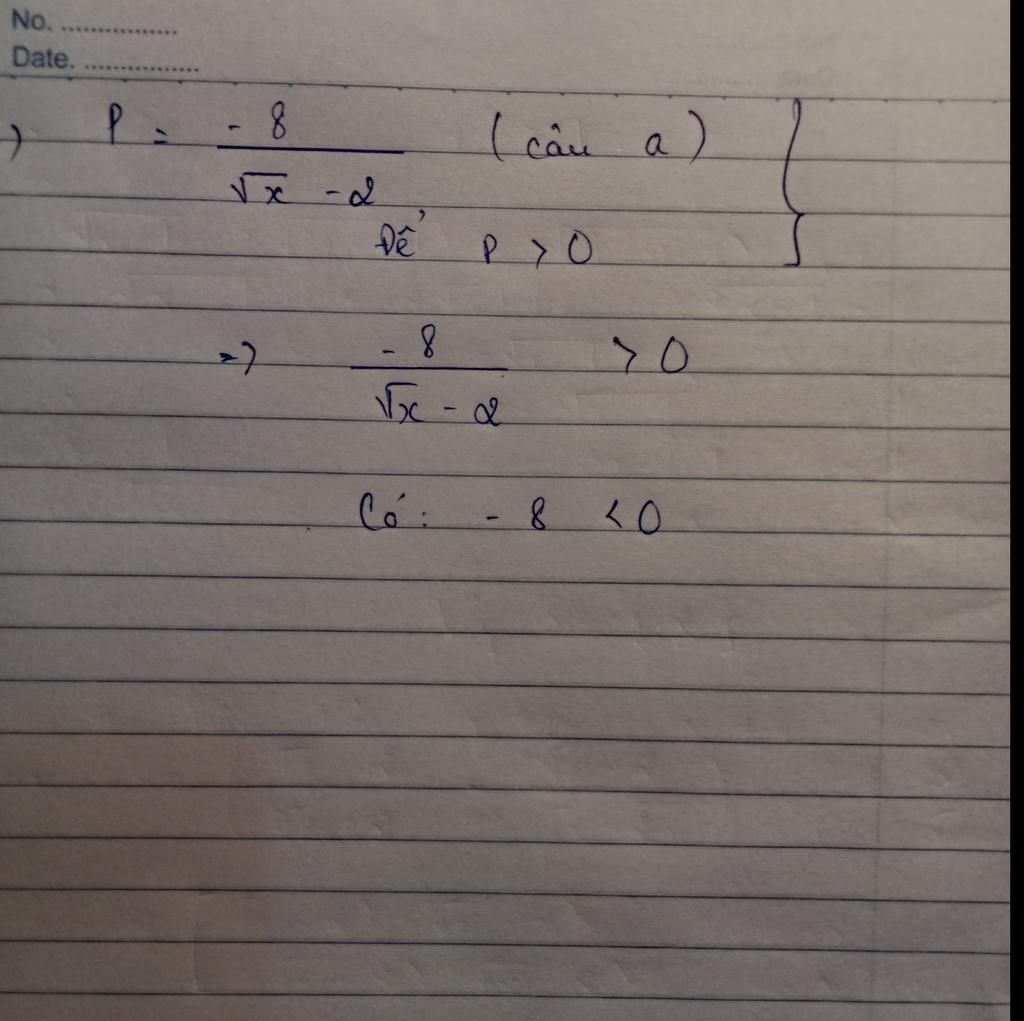 No. ................
Date. ................
) P = -8/(√x - 2) (câu a) }
Để P > 0
=> -8/(√x - 2) > 0
Có: - 8 < 0